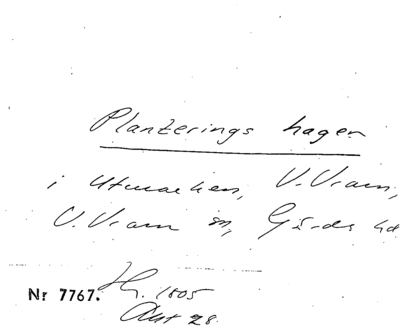 Planterings hagen
i Utmarken, V. Vram,
V. Vram sn, Gärds hd
Nr 7767. Hg. 1805
Akt 28.